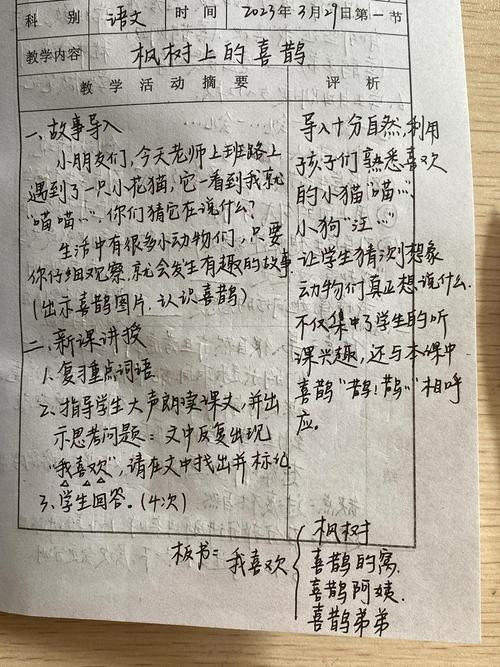 科 别 语文 时 间 2023年3月29日第一节
教学内容 枫树上的喜鹊
教 学 活 动 摘 要 评 析
一、故事导入
小朋友们,今天老师上班路上
遇到了一只小花猫,它一看到我就
"喵喵…",你们猜它在说什么?
生活中有很多小动物们,只要
你仔细观察,就会发生有趣的故事
(出示喜鹊图片,认识喜鹊)
二、新课讲授
1、复习重点词语
2、指导学生大声朗读课文,并出
示思考问题:文中反复出现
"我喜欢",请在文中找出并标化
3、学生回答。(4次)
导入十分自然,利用
孩子们熟悉喜欢
的小猫"喵…",
小狗"汪…"
让学生猜测想象
动物们真正想说什么.
不仅集中了学生的听
课兴趣,还与本课中
喜鹊"鹊!鹊…"相呼
应。
板书:我喜欢
枫树
喜鹊的窝.
喜鹊阿姨.
喜鹊弟弟